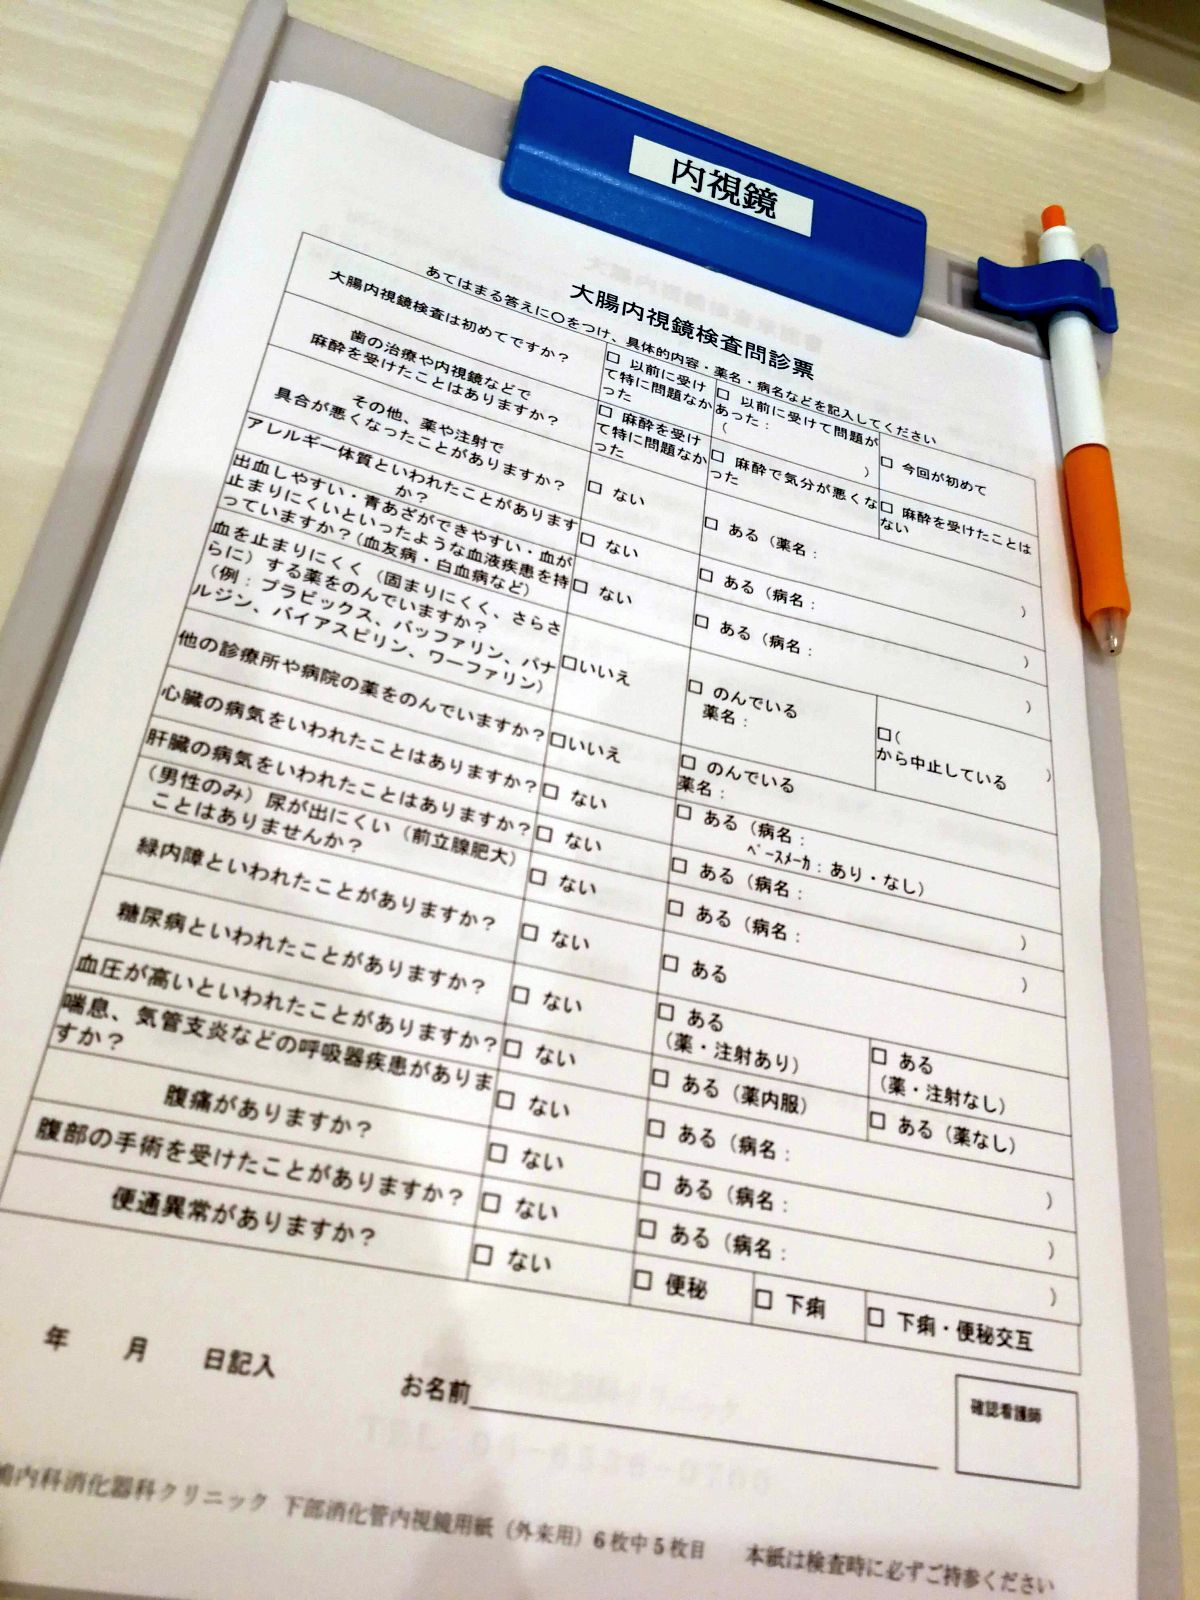 内視鏡
大腸内視鏡検査問診票
あてはまる答えに〇をつけ、具体的内容・薬名・病名などを記入してください
大腸内視鏡検査は初めてですか？
□ 以前に受け
て特に問題なか
った
□ 以前に受けて問題が
あった：
（ ）
□ 今回が初めて
歯の治療や内視鏡などで
麻酔を受けたことはありますか？
□ 麻酔を受け
て特に問題なか
った
□ 麻酔で気分が悪くな
った
□ 麻酔を受けたことは
ない
その他、薬や注射で
具合が悪くなったことがありますか？
□ ない
□ ある（薬名： ）
アレルギー体質といわれたことがあります
か？
□ ない
□ ある（病名： ）
出血しやすい・青あざができやすい・血が
止まりにくいといったような血液疾患を持
っていますか？（血友病・白血病など）
□ ない
□ ある（病名： ）
血を止まりにくく（固まりにくく、さらさ
らに）する薬をのんでいますか？
（例：プラビックス、バッファリン、パナ
ルジン、バイアスピリン、ワーファリン）
□いいえ
□ のんでいる
薬名：
□（ ）
から中止している
他の診療所や病院の薬をのんでいますか？
□いいえ
□ のんでいる
薬名：
心臓の病気をいわれたことはありますか？
□ ない
□ ある（病名：
ﾍﾟｰｽﾒｰｶ：あり・なし）
肝臓の病気をいわれたことはありますか？
□ ない
□ ある（病名： ）
（男性のみ）尿が出にくい（前立腺肥大）
ことはありませんか？
□ ない
□ ある（病名： ）
緑内障といわれたことがありますか？
□ ない
□ ある
糖尿病といわれたことがありますか？
□ ない
□ ある
（薬・注射あり）
□ ある
（薬・注射なし）
血圧が高いといわれたことがありますか？
□ ない
□ ある（薬内服）
□ ある（薬なし）
喘息、気管支炎などの呼吸器疾患がありま
すか？
□ ない
□ ある（病名： ）
腹痛がありますか？
□ ない
□ ある（病名： ）
腹部の手術を受けたことがありますか？
□ ない
□ ある（病名： ）
便通異常がありますか？
□ ない
□ 便秘
□ 下痢
□ 下痢・便秘交互
年 月 日記入
お名前
確認看護師
内科消化器科クリニック 下部消化管内視鏡用紙（外来用）６枚中５枚目 本紙は検査時に必ずご持参ください